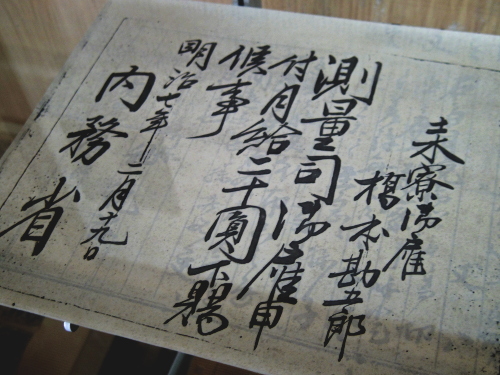 未寮御雇
橋本勘五郎
測量司御雇申
付月給二十圓下賜
候事
明治七年二月十九日
内務省